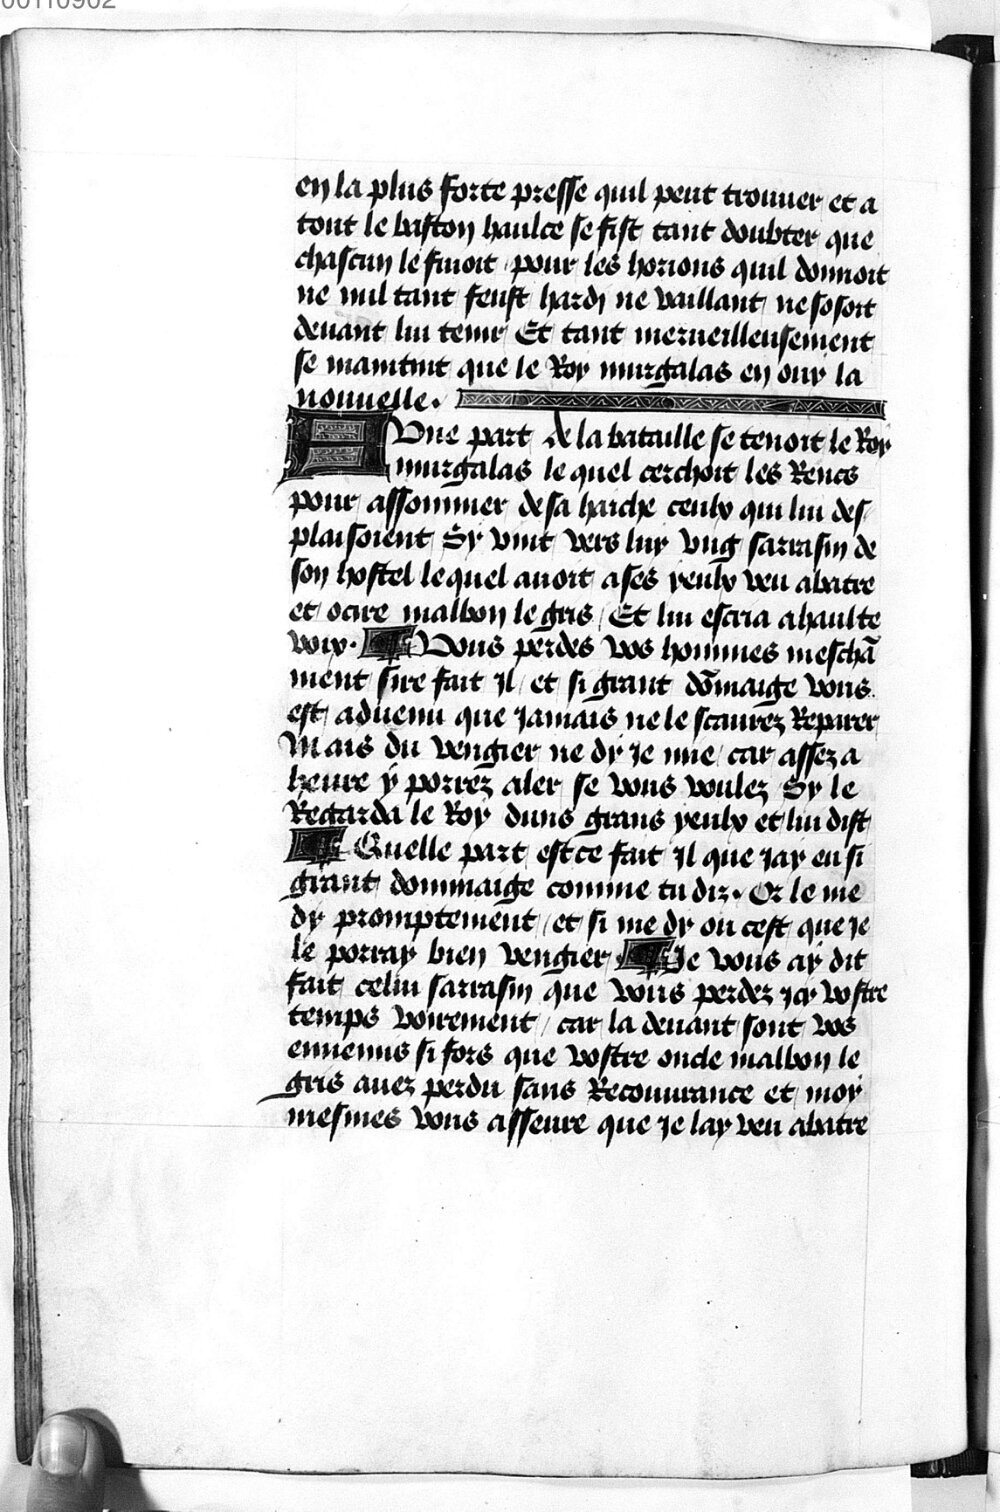 00110902
en la plus forte presse quil peut trouuer et a
tout le baston haulce se fist tant doubter que
chascun le fuioit pour les horions quil donnoit
ne nul tant feust hardj ne vaillant ne sosoit
deuant lui tenir Et tant merueilleusement
se maintint que le Roy murgalas en ouy la
nouuelle.
Dune part de la bataille se tenoit le Roy
murgalas le quel cerchoit les Rencs
pour assommer de sa haiche ceulx qui lui des
plaisoient Sy vint vers luy vng sarrasin de
son hostel le quel auoit a ses yeulx veu abatre
et ocire malbon le gris Et lui escria a haulte
voix. Vous perdes vos hommes meschã
ment sire fait il et si grant dõmaige vous
est aduenu que jamais ne le scaurez Reparer
Mais du vengier ne dy je mie car assez a
heure y porrez aler se vous voulez Sy le
Regarda le Roy duns grans yeulx et lui dist
Quelle part est ce fait il que jay eu si
grant dommaige comme tu diz. Or le me
dy promptement / et si me dy ou cest que je
le porray bien vengier Je vous ay dit
fait celui sarrasin que vous perdez icy vostre
temps voirement / car la deuant sont vos
ennemis si fors que vostre oncle malbon le
gris auez perdu sans Recouurance et moy
mesmes vous asseure que je lay veu abatre